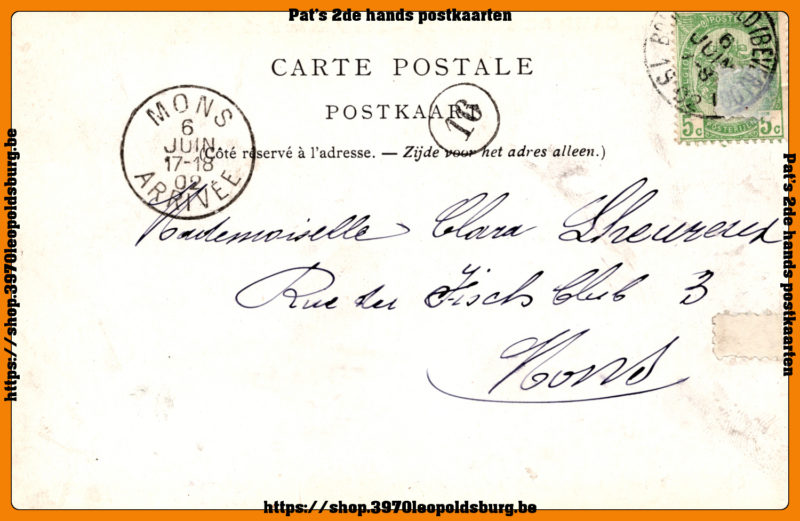 Pat's 2de hands postkaarten
CARTE POSTALE
POSTKAART
16
(Côté réservé à l'adresse. — Zijde voor het adres alleen.)
MONS
6
JUIN
17-18
02
ARRIVÉE
6
JUIN
5c 5c
Mademoiselle Clara Lheureux
Rue du Fisch Club 3
Mons
https://shop.3970leopoldsburg.be
Pat's 2de hands postkaarten
https://shop.3970leopoldsburg.be